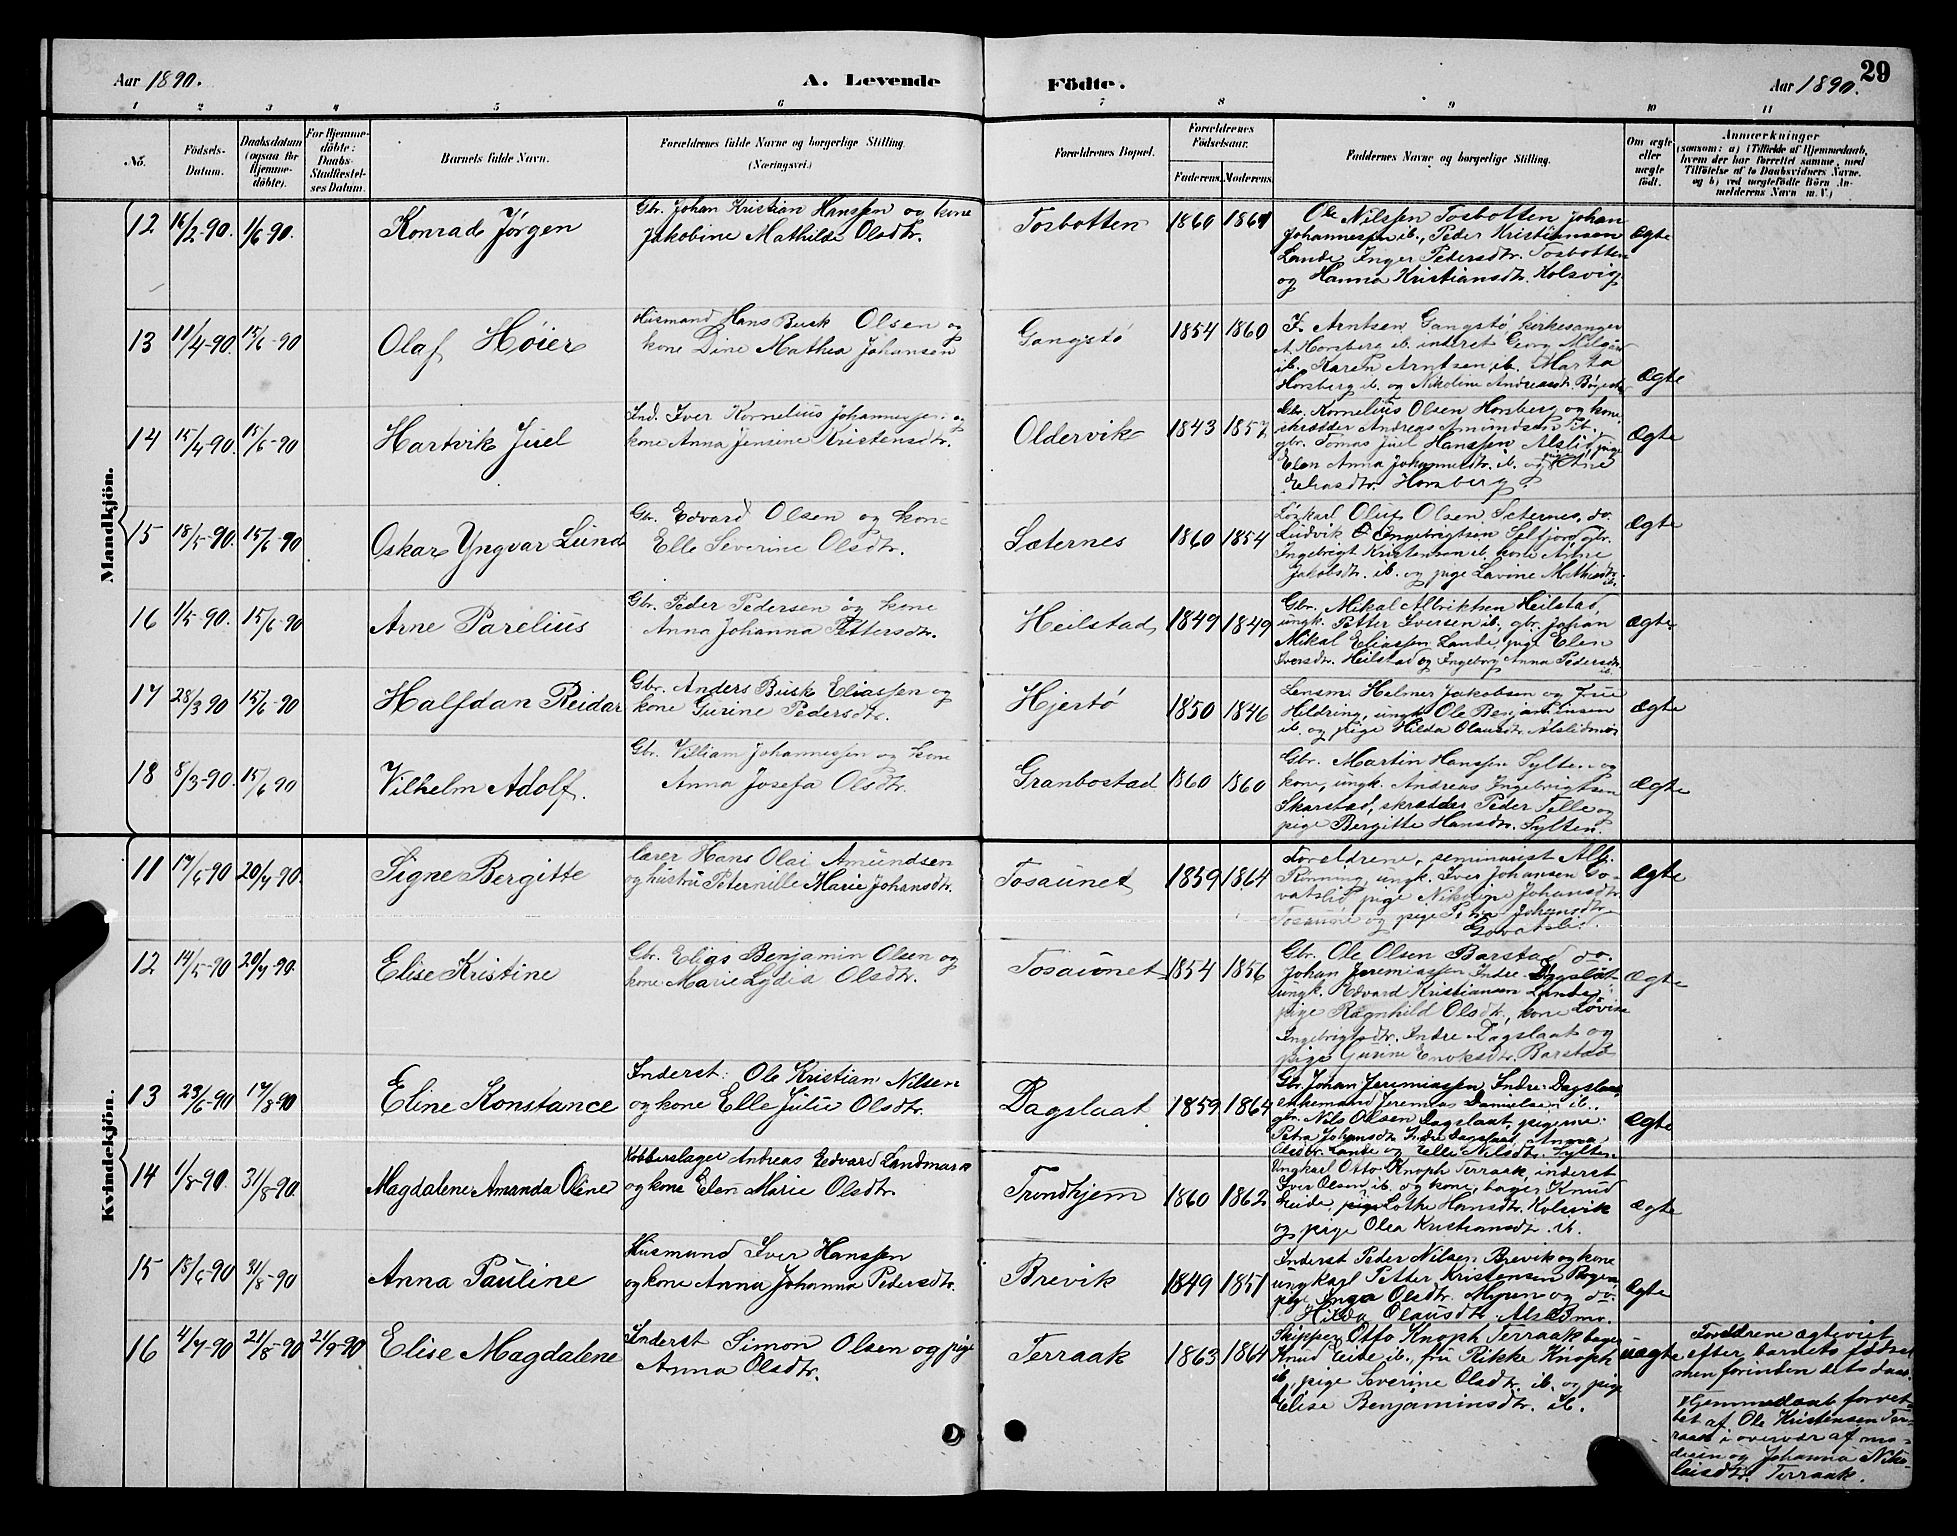 Aar 1890.
A. Levende
Födte.
Aar 1890.
29
1 2 3 4 5 6 7 8 9 10 11
No.
Födsels-
Datum.
Daabsdatum
(ogsaa for
Hjemme-
döbte).
For Hjemme-
döbte:
Daabs-
Stadfæstel-
ses Datum.
Barnets fulde Navn.
Forældrenes fulde Navne og borgerlige Stilling.
(Næringsvei.)
Forældrenes Bopæl.
Forældrenes
Födselsaar.
Faderens. Moderens.
Faddernes Navne og borgerlige Stilling.
Om ægte
eller
uægte
födt.
Anmærkninger
(saasom: a) i Tilfælde af Hjemmedaab,
hvem der har forrettet samme, med
Tilföielse af to Daabsvidners Navne,
og b) ved uægtefödte Börn An-
melderens Navn m. V.)
Mandkjön.
12 16/2-90. 1/6 90. Konrad Jørgen
Gbr. Johan Kristian Hanssen og kone
Jakobine Mathilde Olsdtr.
Tosbotten 1860 1861
Ole Nilssen Tosbotten Johan
Johannessen ib., Peder Kristiansen
Lande Inger Pedersdtr. Tosbotten
og Hanna Kristiansdtr. Kolsvig
Ægte
13 11/4-90. 15/6-90 Olaf Høier
Husmand Hans Busk Olsen og
kone Dine Mathea Johansen
Gangstø 1854 1860
Arntsen Gangstø kirkesanger
Horsberg ib. inderst Georg
ib. Karen Arntsen ib. Marta
Horsberg ib. og Nikoline Andreasdtr.
Ægte
14 15/4-90. 15/6-90 Hartvik Juel
Ind. Iver Kornelius Johannessen og
kone Anna Jensine Kristensdtr.
Oldervik 1843 1857
Gbr. Kornelius Olsen Horsberg og kone,
skrædder Andreas Amundsen ib.,
gbr. Tomas Juel Hanssen Alslid, pige
Elen Anna Johannesdtr. ib. og
Eliasdtr. Horsberg
Ægte
15 18/5-90. 15/6-90 Oskar Yngvar Lund
Gbr. Edvard Olsen og kone
Elle Severine Olsdtr.
Sæternes 1860 1854
Løskarl Oluf Olsen Sæternes, do.
Ludvik Ingebrigtsen Selfjord, gbr.
Ingebrigt Kristensen ib. kone Anne
Jakobsdtr. ib. og pige Lavine Mathisdtr.
ib.
Ægte
16 1/5-90. 15/6-90 Arne Parelius
Gbr. Peder Pedersen og kone
Anna Johanna Pettersdtr.
Heilstad 1849 1849
Gbr. Mikal Albriktsen Heilstad,
ungk. Petter Iversen ib. gbr. Johan
Mikal Eliassen Lande, pige Elen
Iversdtr. Heilstad og Ingeborg Anna Pedersdtr.
ib.
Ægte
17 28/3 90 15/6-90 Halfdan Reidar
Gbr. Anders Busk Eliassen og
kone Gurine Pedersdtr.
Hjertø 1850 1846
Lensm. Helmer Jakobsen og Frue
Hildring, ungk. Ole Benjaminsen
ib. og pige Hilda Olausdtr. Alslidmo
Ægte
18 8/3-90. 15/6 90 Vilhelm Adolf.
Gbr. Villiam Johannessen og kone
Anna Josefa Olsdtr.
Granbostad 1860 1860
Gbr. Martin Hanssen Sylten og
kone, ungk. Andreas Ingebrigtsen
Skarstad, skrædder Peder Telle og
pige Bergitte Hansdtr. Sylten.
Ægte
Kvindekjön.
11 20/4 90. Signe Bergitte
lærer Hans Olai Amundsen
og hustru Peternille Marie Johansdtr.
Tosaunet 1859 1864
Forældrene, seminarist Alf.
Rönning, ungk. Iver Johansen Go-
vatslid, pige Nikoline Johansdtr.
Tosaune og pige Petra Johansdtr.
Govatslid.
Ægte
12 14/5-90 20/4-90. Elise Kristine
Gbr. Elias Benjamin Olsen og
kone Marie Lydia Olsdtr.
Tosaunet 1854 1856
Gbr. Ole Olsen Barstad do.
Johan Jeremiassen Indre Dagslaat
ungk. Edvard Kristiansen Lande,
pige Ragnhild Olsdtr., kone Lovise
Ingebrigtsdtr. Indre Dagslaat og
pige Gurine Enoksdtr. Barstad
Ægte
13 23/6-90 17/8-90 Eline Konstance
Inderst: Ole Kristian Nilsen
og kone Elle Julie Olsdtr.
Dagslaat 1859 1864
Gbr. Johan Jeremiassen Indre Dagslaat,
enkemand Jeremias Danielsen ib.,
gbr. Nils Olsen Dagslaat, pigerne
Petra Johansdtr. Indre Dagslaat, Anna
Olsdtr. Lande og Elle Nilsdtr. Sylten
Ægte
14 1/8-90. 31/8-90. Magdalene Amanda Oline
Kobberslager Andreas Edvard Landmark
og kone Elen Marie Olsdtr.
Trondhjem 1860 1862
Ungkarl Otto Knoph Terraak, inderst
Iver Olsen ib. og kone, bager Knud
Eide, pige Lothe Hansdtr. Kolsvik
og pige Olea Kristiansdtr. ib.
Ægte
15 18/6-90 31/8-90 Anna Pauline
Husmand Iver Hanssen
og kone Anna Johanna Pedersdtr.
Brevik 1849 1851
Inderst Peder Nilsen Brevik og kone
ungkarl Petter Kristensen Bogen,
pige Inga Olsdtr. Myren og do.
Hilda Olausdtr. Alslidmo.
Ægte
16 4/7-90 21/8-90 21/9-90 Elise Magdalene
Inderst Simon Olsen og pige
Anna Olsdtr.
Terraak 1863 1864
Skipper Otto Knoph Terraak bager
Knud Eide ib., fru Rikke Knoph
ib., pige Severine Olsdtr. ib. og pige
Elise Benjaminsdtr. ib.
uægte
Forældrene ægteviet
efter barnets fødsel
men forinden dets daab.
Hjemmedaab forret-
tet af Ole Kristensen Ter-
raak i overvær af mo-
deren og Johanna Niko-
laisdtr. Terraak.